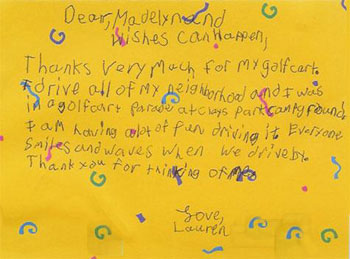 Dear, Madelyn and
Wishes Can Happen,
Thanks very much for my golfcart.
I drive all of my neighborhood and I was
in a golfcart parade at
I am having alot of fun driving it. Everyone
smiles and waves when we drive by.
Thank you for thinking of me.
Love,
Lauren